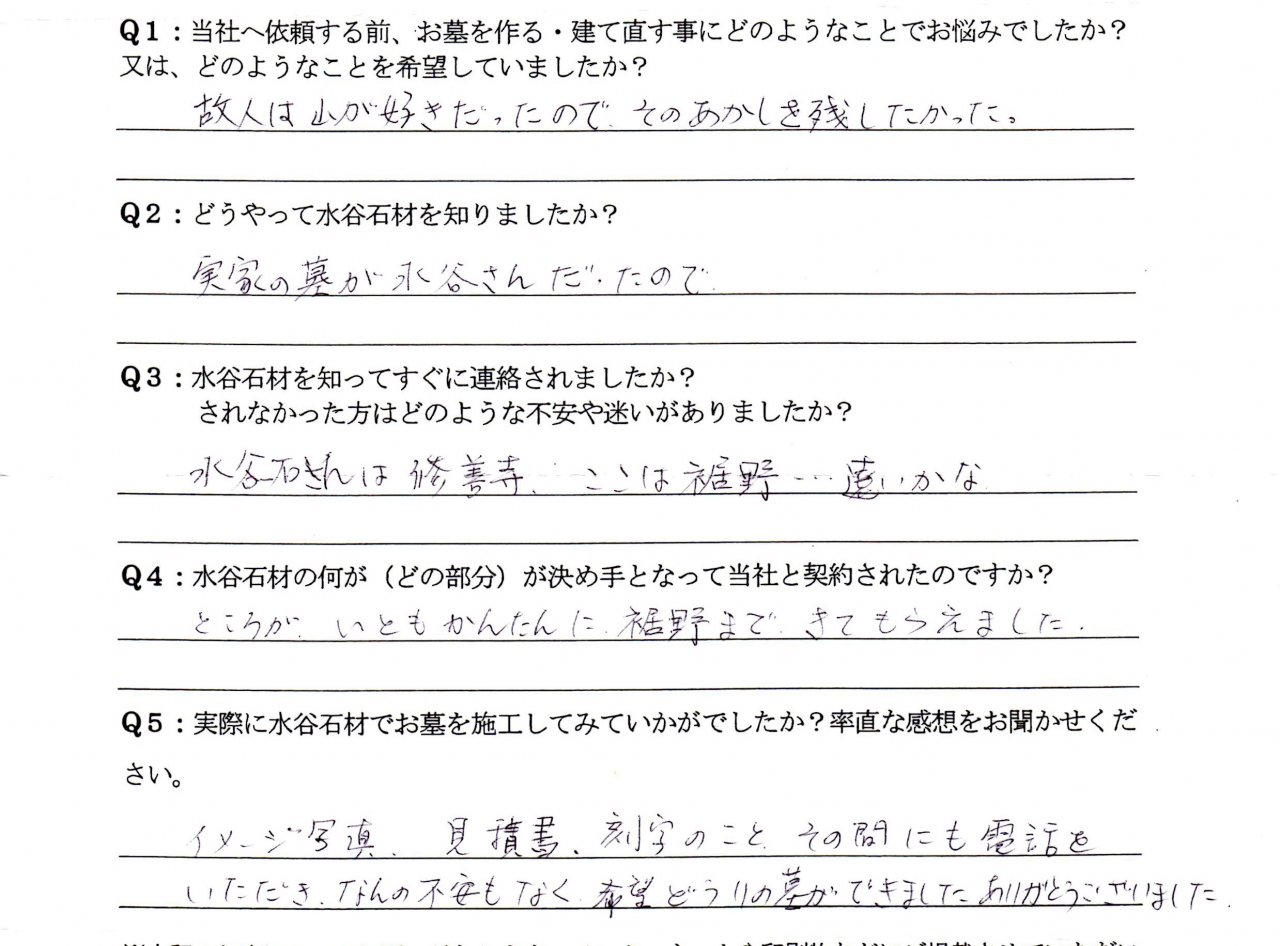 Q1：当社へ依頼する前、お墓を作る・建て直す事にどのようなことでお悩みでしたか？
又は、どのようなことを希望していましたか？
故人は山が好きだったので、そのあかしを残したかった。
Q2：どうやって水谷石材を知りましたか？
実家の墓が水谷さんだったので
Q3：水谷石材を知ってすぐに連絡されましたか？
されなかった方はどのような不安や迷いがありましたか？
水谷石さんは修善寺、ここは裾野…遠いかな
Q4：水谷石材の何が（どの部分）が決め手となって当社と契約されたのですか？
ところが、いともかんたんに、裾野まで、きてもらえました.
Q5：実際に水谷石材でお墓を施工してみていかがでしたか？率直な感想をお聞かせくだ
さい。
イメージ写真、見積書、刻字のこと、その間にも電話を
いただき、なんの不安もなく、希望どうりの墓ができました ありがとうございました